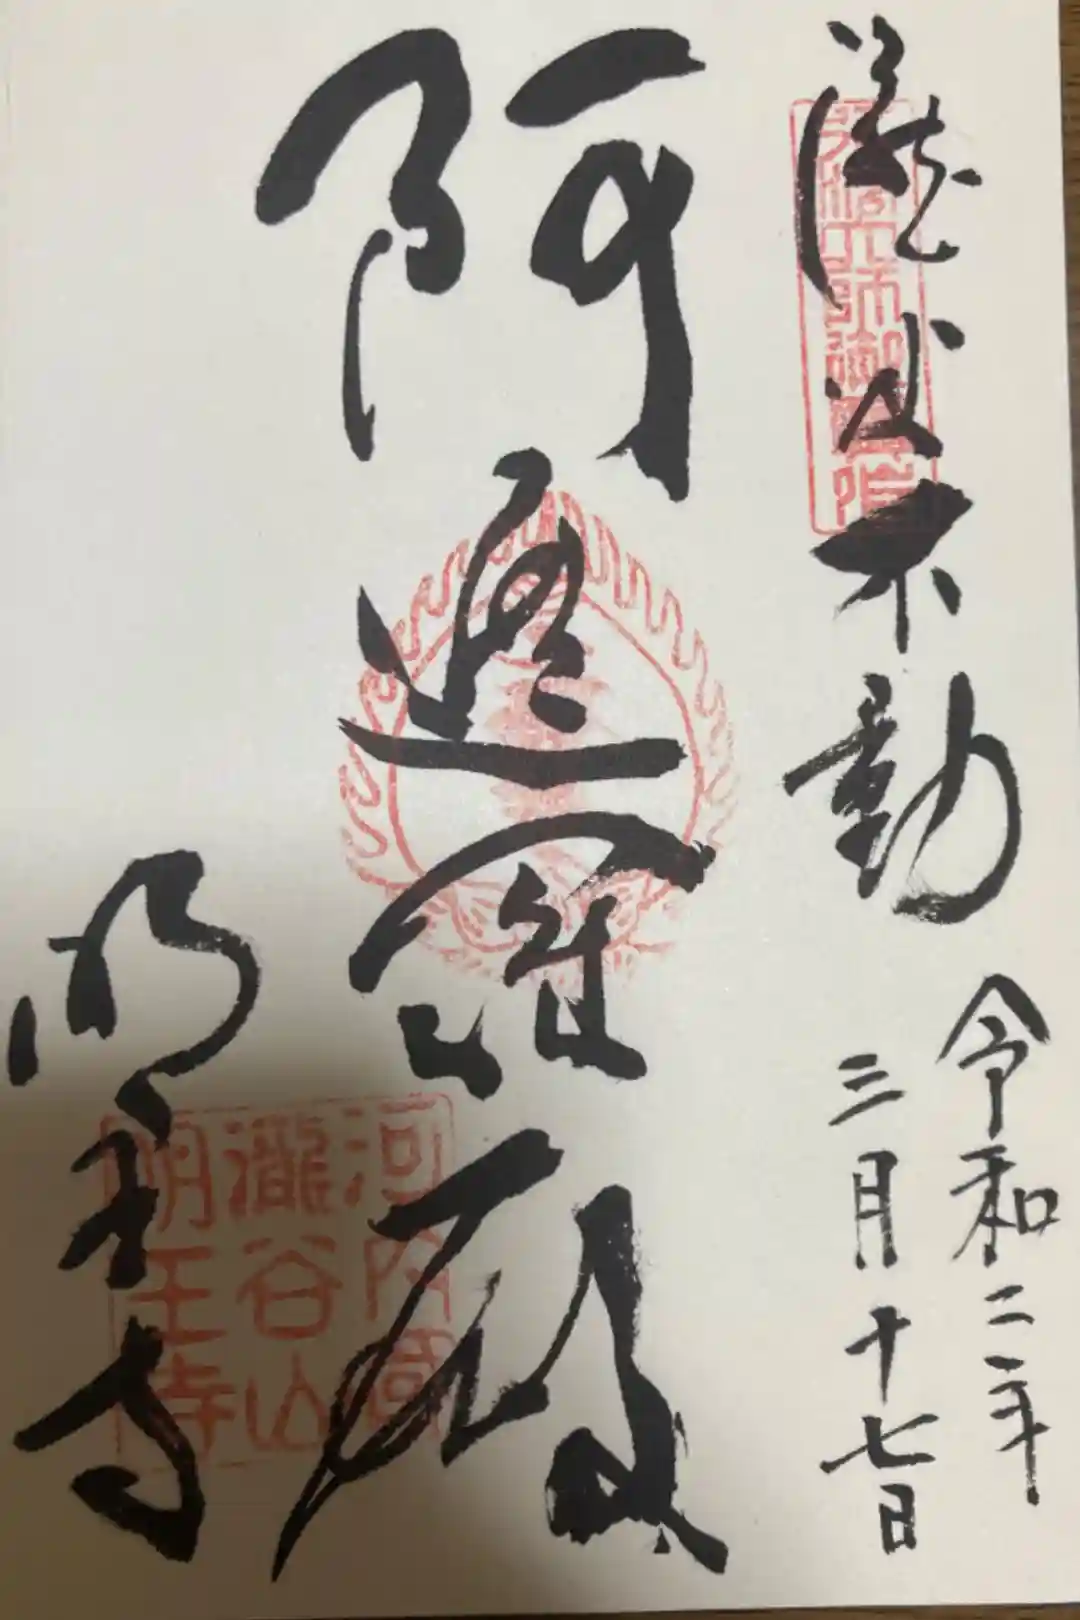 瀧谷不動
令和二年
三月十七日
阿遮羅殿
明王寺
河内國
瀧谷山
明王寺